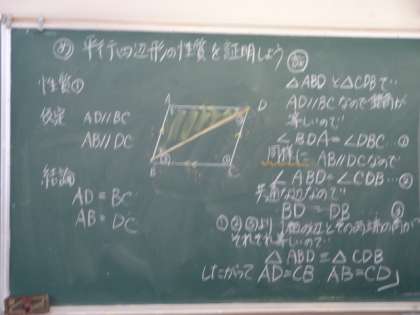 め 平行四辺形の性質を証明しよう
性質①
仮定 AD//BC
AB//DC
結論
AD = BC
AB = DC
A
D
B
C
△ABDと△CDBで
AD//BCなので錯角が
等しいので
∠BDA=∠DBC…①
同様に AB//DCなので
∠ABD=∠CDB…②
共通な辺なので
BD = DB ③
①②③より 1組の辺とその両端の角が
それぞれ等しいので
△ABD≡△CDB
したがって AD=CB AB=CD